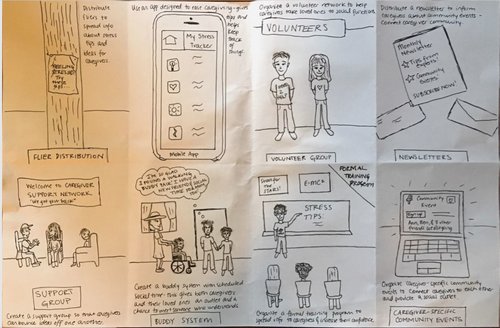 Distribute
fliers to
spread info
about stress
tips and
ideas for
caregivers
FEELING
STRESSED?
Try
these
tips
FLIER DISTRIBUTION
Use an app designed to ease caregiving - gives
tips and
helps
keep
track
of
things.
My Stress
Tracker
Mobile App
Organize a volunteer network to help
caregivers take loved ones to social functions
VOLUNTEERS
VOLUNTEER GROUP
Distribute a newsletter to inform
caregivers about community events -
Connect caregiver community
Monthly
Newsletter
Tips from
Experts!
Community
Events
SUBSCRIBE NOW!
NEWSLETTERS
Welcome to CAREGIVER
SUPPORT NETWORK
"We got your back"
SUPPORT
GROUP
Create a support group so that caregivers
can bounce ideas off one another.
I'M SO GLAD
I FOUND A WALKING
BUDDY PAIR. I HAVE A
NEW FRIEND
Create a buddy system with scheduled
social time - this gives both caregivers
and their loved ones an outlet and a
chance to meet someone who understands
BUDDY SYSTEM
FORMAL
TRAINING
PROGRAM
E=MC²
STRESS
TIPS
Organize a formal training program to
spread info to caregivers & increase their confidence
Community
Event
Sign up
Organize caregiver-specific community
events to connect caregivers to each other
and provide a social outlet
CAREGIVER-SPECIFIC
COMMUNITY EVENTS